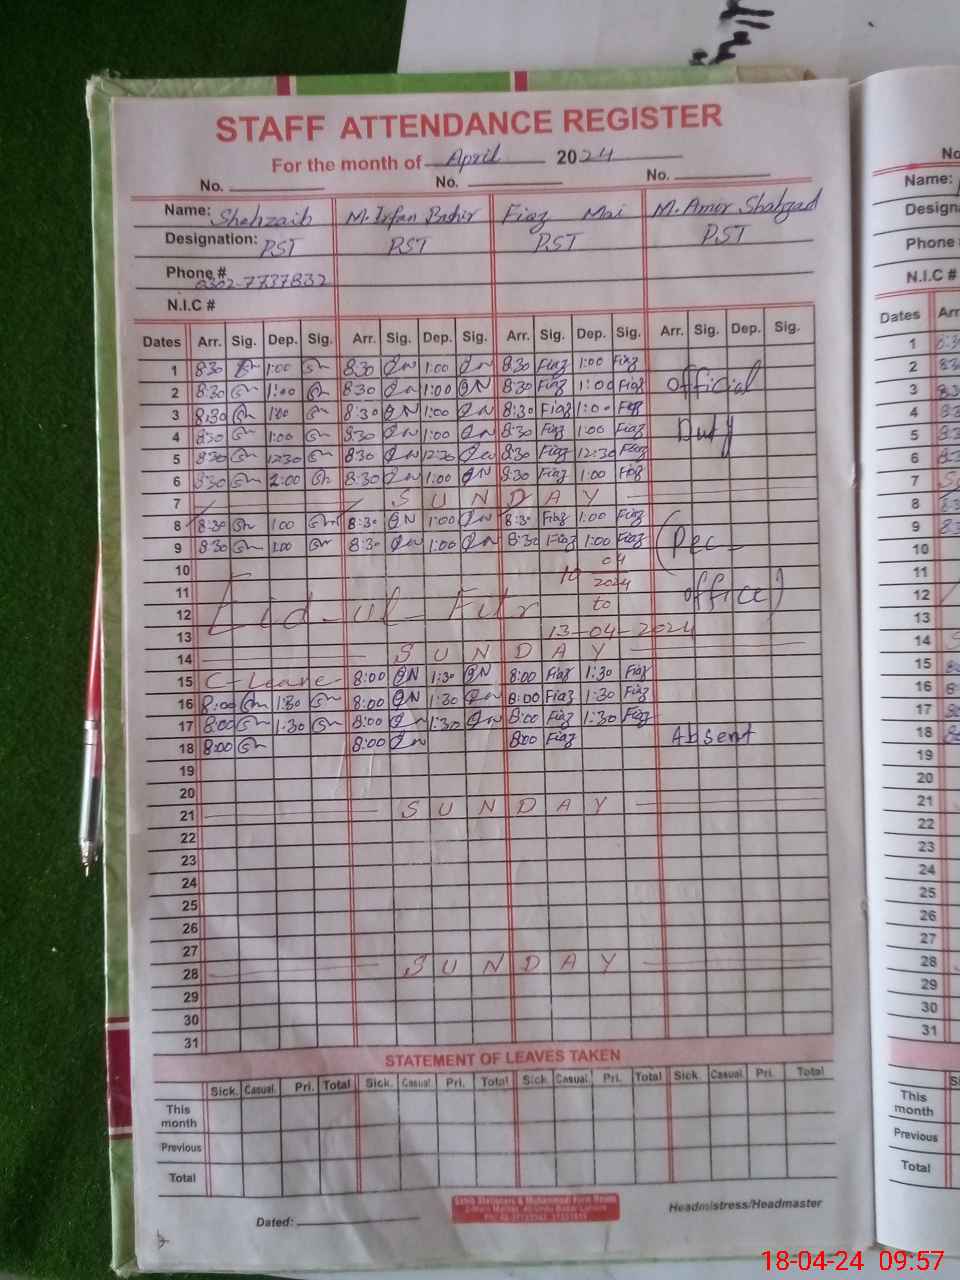 STAFF ATTENDANCE REGISTER
For the month of April 2024
No. No. No.
Name: Shahzaib M. Irfan Bashir Fiaz Mai M. Amir Shahzad
Designation: PST PST PST PST
Phone # 0302-7737832
N.I.C #
Dates Arr. Sig. Dep. Sig. Arr. Sig. Dep. Sig. Arr. Sig. Dep. Sig. Arr. Sig. Dep. Sig.
1 8:30 1:00 8:30 1:00 8:30 Fiaz 1:00 Fiaz
2 8:30 1:00 8:30 1:00 8:30 Fiaz 1:00 Fiaz Official
3 8:30 1:00 8:30 1:00 8:30 Fiaz 1:00 Fiaz
4 8:30 1:00 8:30 1:00 8:30 Fiaz 1:00 Fiaz Duty
5 8:30 12:30 8:30 12:30 8:30 Fiaz 12:30 Fiaz
6 8:30 1:00 8:30 1:00 8:30 Fiaz 1:00 Fiaz
7 SUNDAY
8 8:30 1:00 8:30 1:00 8:30 Fiaz 1:00 Fiaz
9 8:30 1:00 8:30 1:00 8:30 Fiaz 1:00 Fiaz (Dec
10 10 04
11 2024 office)
12 Eid-ul-Fitr to
13 13-04-2024
14 SUNDAY
15 C-Leave 8:00 1:30 8:00 Fiaz 1:30 Fiaz
16 8:00 1:30 8:00 1:30 8:00 Fiaz 1:30 Fiaz
17 8:00 1:30 8:00 1:30 8:00 Fiaz 1:30 Fiaz
18 8:00 8:00 8:00 Fiaz Absent
19
20
21 SUNDAY
22
23
24
25
26
27
28 SUNDAY
29
30
31
STATEMENT OF LEAVES TAKEN
Sick. Casual. Pri. Total Sick. Casual. Pri. Total Sick. Casual. Pri. Total Sick. Casual. Pri. Total
This month
Previous
Total
Dated:
Headmistress/Headmaster
No
Name:
Design
Phone
N.I.C #
Dates Arr
1
2
3
4
5
6
7
8
9
10
11
12
13
14
15
16
17
18
19
20
21
22
23
24
25
26
27
28
29
30
31
This month
Previous
Total
18-04-24 09:57